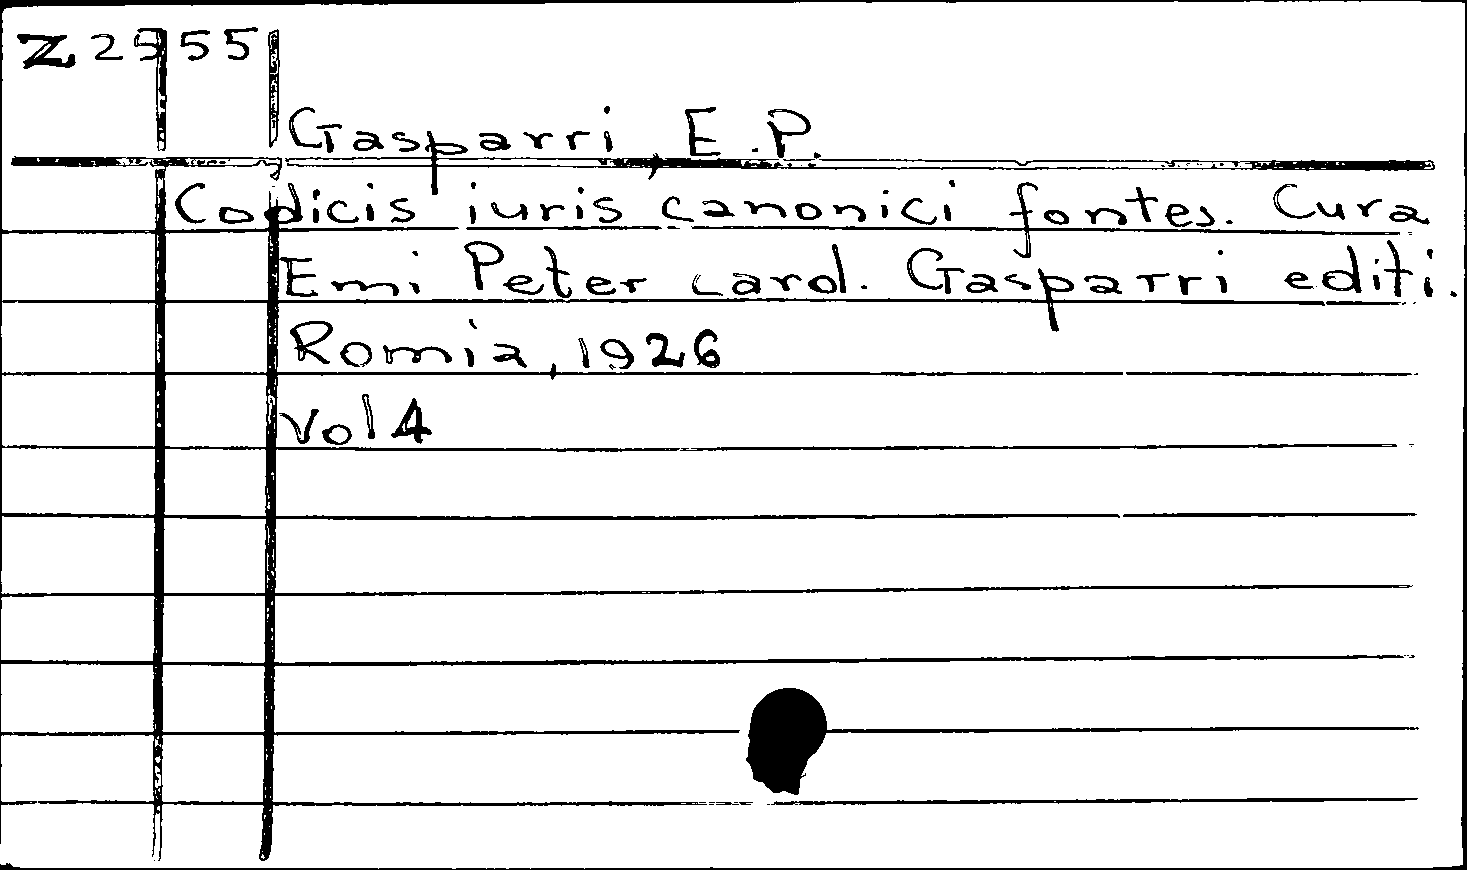 Z 2555
Gasparri, E.P.
Codicis iuris canonici fontes. Cura
Emi Peter card. Gasparri editi.
Romia, 1926
Vol 4